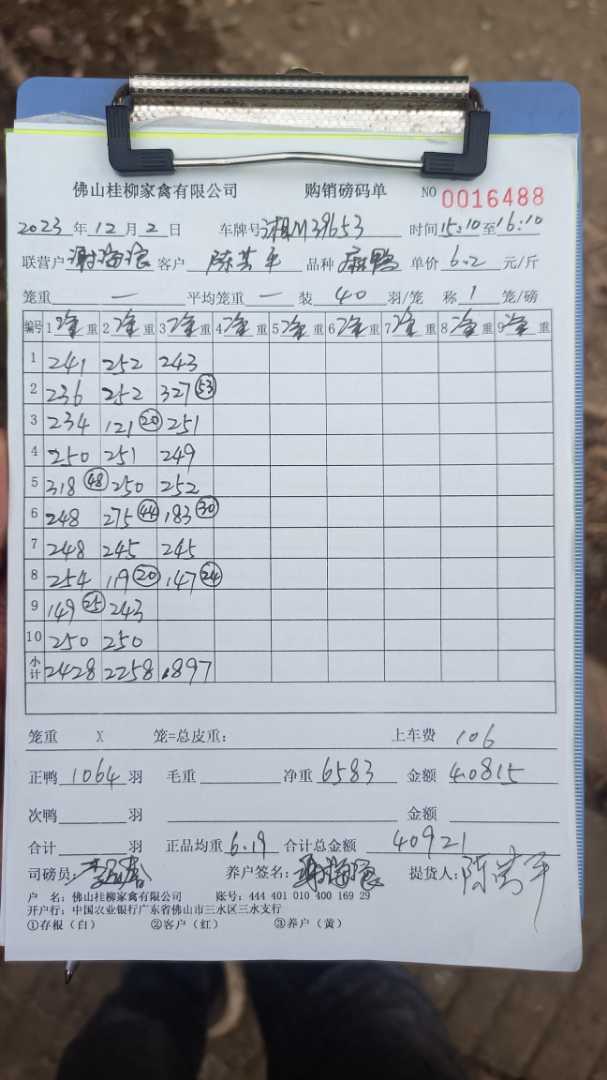 佛山桂柳家禽有限公司 购销磅码单 NO 0016488
2023年12月2日 车牌号湘M39653 时间15:10至16:10
联营户谢海浪 客户 品种麻鸭 单价6.2元/斤
笼重— 平均笼重— 装40羽/笼 称1笼/磅
编号 1净重 2净重 3净重 4净重 5净重 6净重 7净重 8净重 9净重
1 241 252 243
2 236 252 327 53
3 234 121 20 251
4 250 251 249
5 318 48 250 252
6 248 275 44 183 30
7 248 245 245
8 254 119 20 147 24
9 149 25 243
10 250 250
小计 2428 2258 1897
笼重 X 笼=总皮重: 上车费 106
正鸭1064羽 毛重 净重6583 金额40815
次鸭 羽 金额
合计 羽 正品均重6.19 合计总金额 40921
司磅员: 养户签名:谢海浪 提货人:
户 名:佛山桂柳家禽有限公司 账号:444 401 010 400 169 29
开户行:中国农业银行广东省佛山市三水区三水支行
①存根(白) ②客户(红) ③养户(黄)